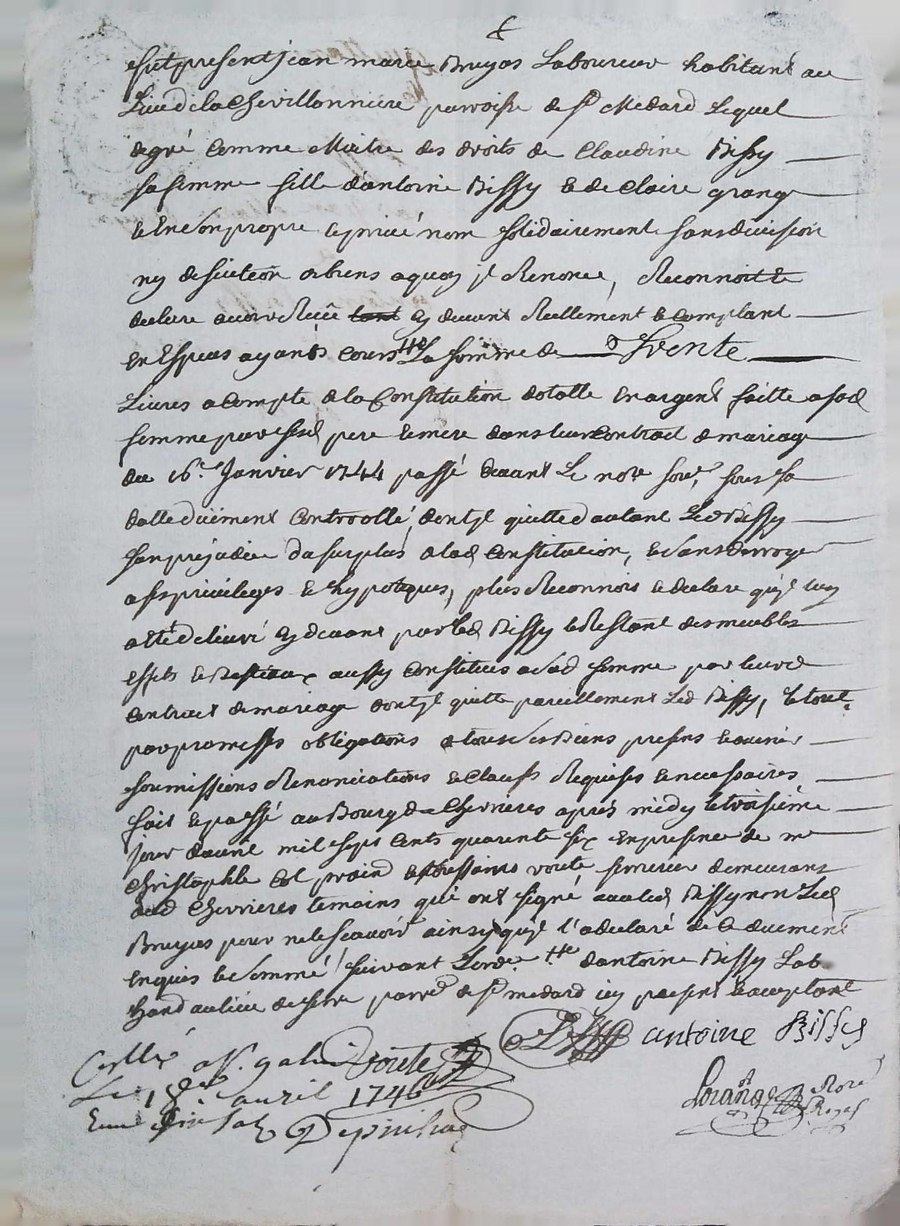 fut present jean marie Bruyas Laboureur habitant au
Lieu de la Chevillonniere parroisse de St Medard Lequel
de gré comme Maitre des droits de Claudine Bissy
sa femme fille dantoine Bissy & de Claire grange
& En son propre & privé nom solidairement sans division
ny discution de biens a quoy jl Renonce, Reconnoit &
declare avoir Receu tant cy devant Réellement & comptant
en Espèces ayants cours La somme de Trente
Livres acompte de la Constitution dotalle en argent faitte a sad
femme par sesd pere & mere dans leur contrat de mariage
du 16e Janvier 1744 passé devant Le nore sousé sous sa
datte düement Controllé, dont jl quitte dautant Led Bissy
sans prejudice du surplus de lad Constitution, & sans derroger
a ses privileges & hypoteques, plus Reconnoit & declare qu'jl luy
a été delivré cy devant par led Bissy le Restant des meubles
effets & Bestiaux aussy constitues a sad femme par leurd
contract de mariage dont jl quitte pareillement Led Bissy, le tout
par promesses obligations de tous ses Biens presens & avenir
soumissions Renonciations & Clauses Requises & necessaires
fait & passé au Bourg de Chevrieres apres midy le troisieme
jour davril mil sept cents quarente six en presence de me
Christophle praticien & voute serrurier demeurants
aud Chevrieres temoins qui ont signé avec led Bissy non Led
Bruyas pour ne le scavoir ainsy qu'jl l'a declaré de ce duement
enquis & sommé suivant Lordce dantoine Bissy Lab
au lieu de parrse de St medard icy present & acceptant
antoine Bissy
Conllé a St galmier voute
Le avril 1746
Reçu six sols Depinhac
nore
Royal